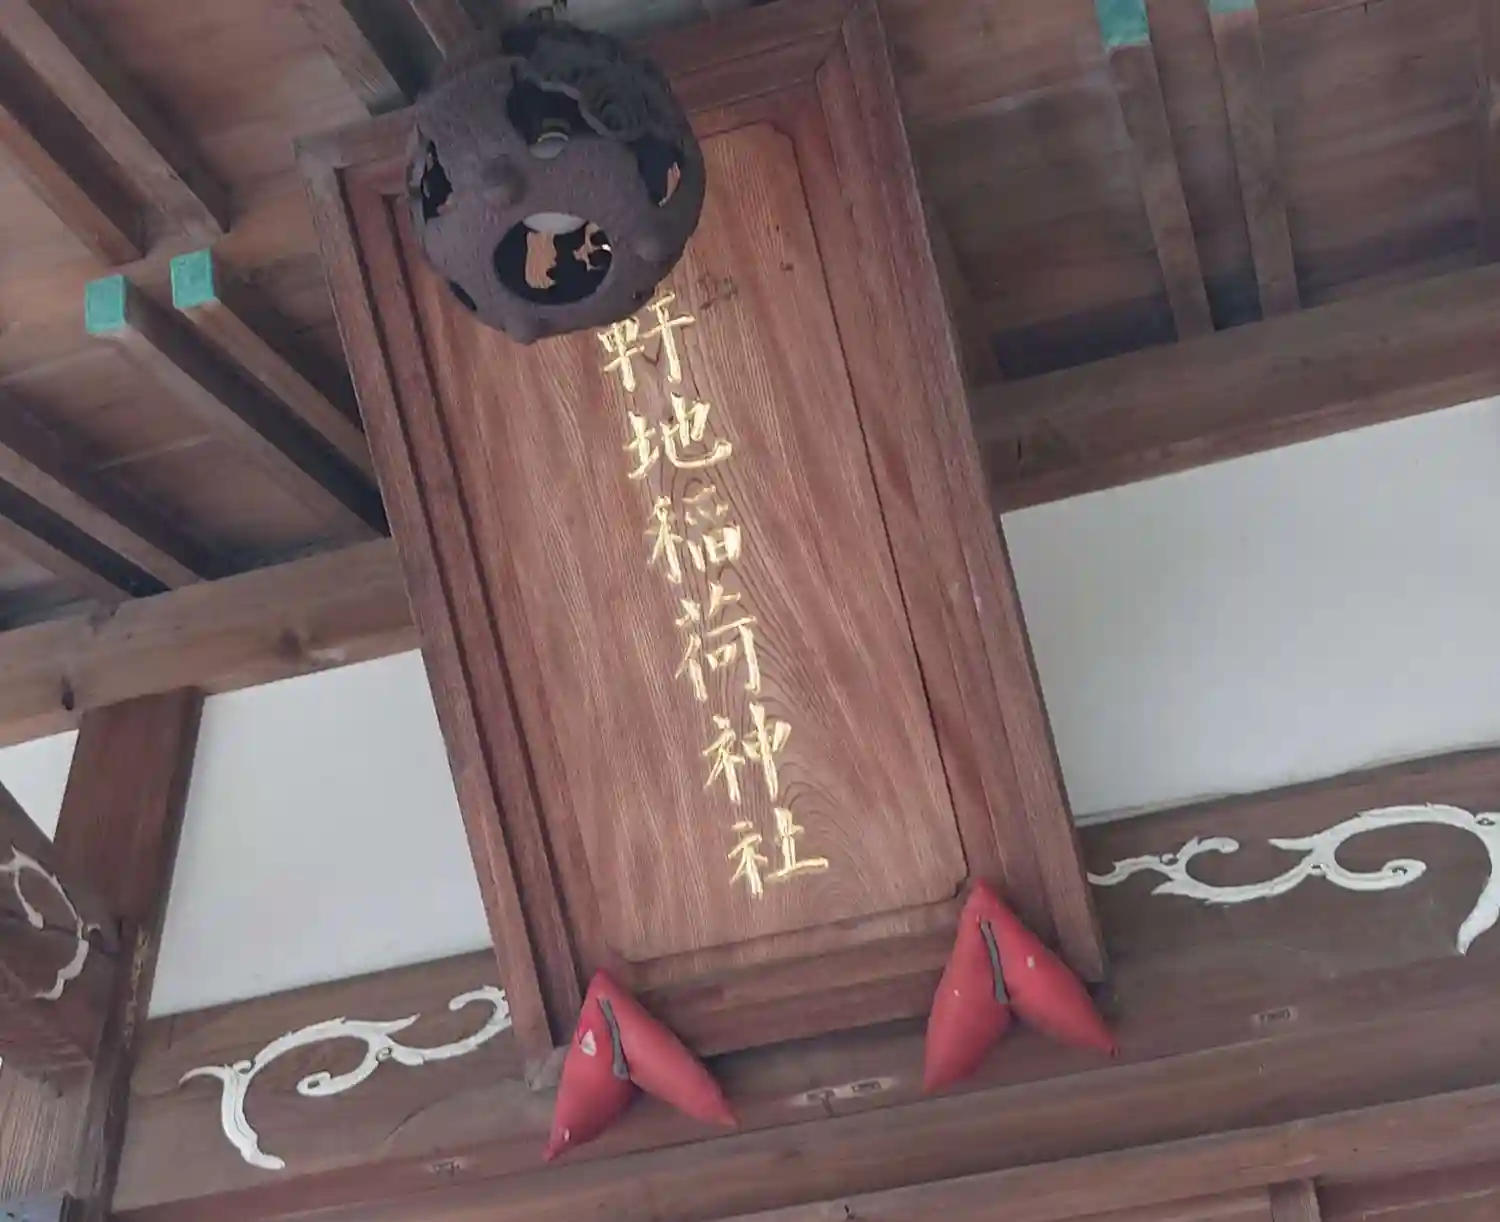 軒地稲荷神社